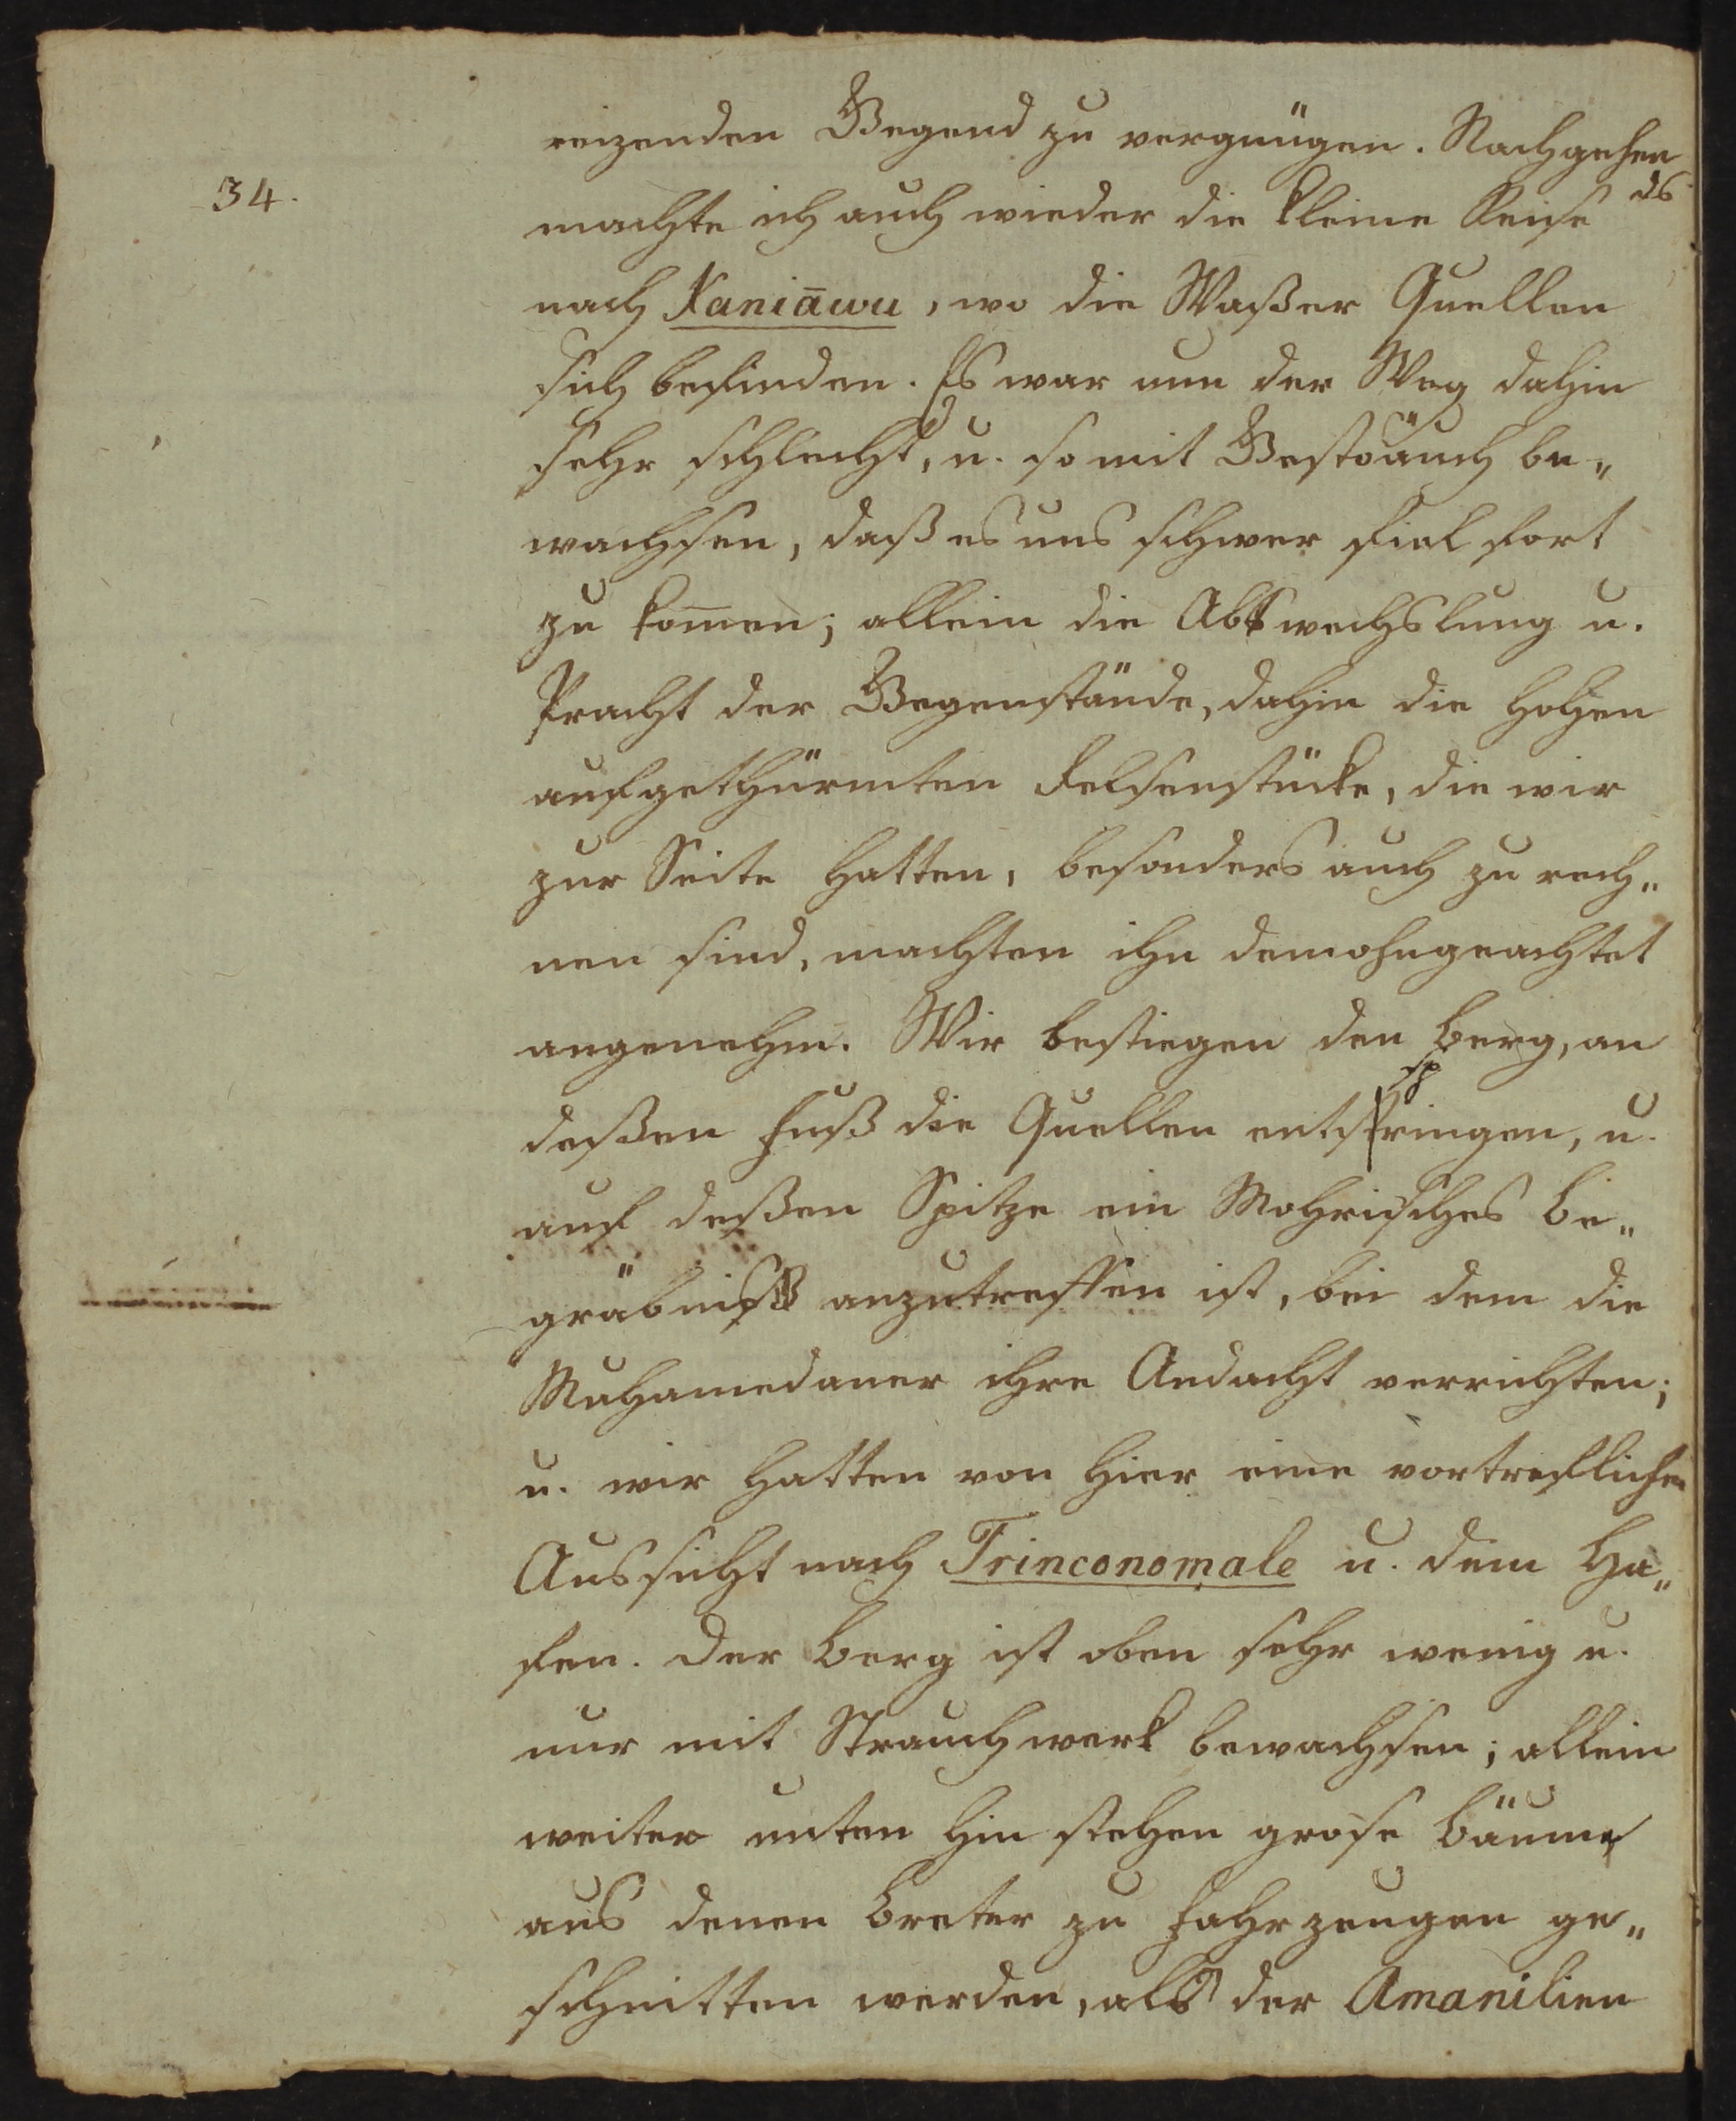 34.
reizenden Gegend zu vergnügen. Nachgehen
ds
machte ich auch wieder die kleine Reise
nach Kaniāwu, wo die Waßer Quellen
sich befinden. Es war nun der Weg dahin
sehr schlecht, u. so mit Gesträuch be„
wachsen, daß es uns schwer fiel fort
zu kom̄en; allein die Abwechslung u.
Pracht der Gegenstände, dahin die hohen
aufgethürmten Felsenstücke, die wir
zur Seite hatten, besonders auch zu rech„
nen sind, machten ihn demohngeachtet
angenehm. Wir bestiegen den Berg, an
deßen Fuß die Quellen entspringen, u.
auf deßen Spitze ein Mohrisches Be„
gräbniß anzutreffen ist, bei dem die
Muhamedaner ihre Andacht verrichten;
u. wir hatten von hier eine vortrefliche
Aussicht nach Trinconomale u. dem Ha„
fen. Der Berg ist oben sehr wenig u.
nur mit Strauchwerk bewachsen; allein
weiter unten hin stehen grose Bäume
aus denen Breter zu Fahrzeugen ge„
schnitten werden, als der Amanilien